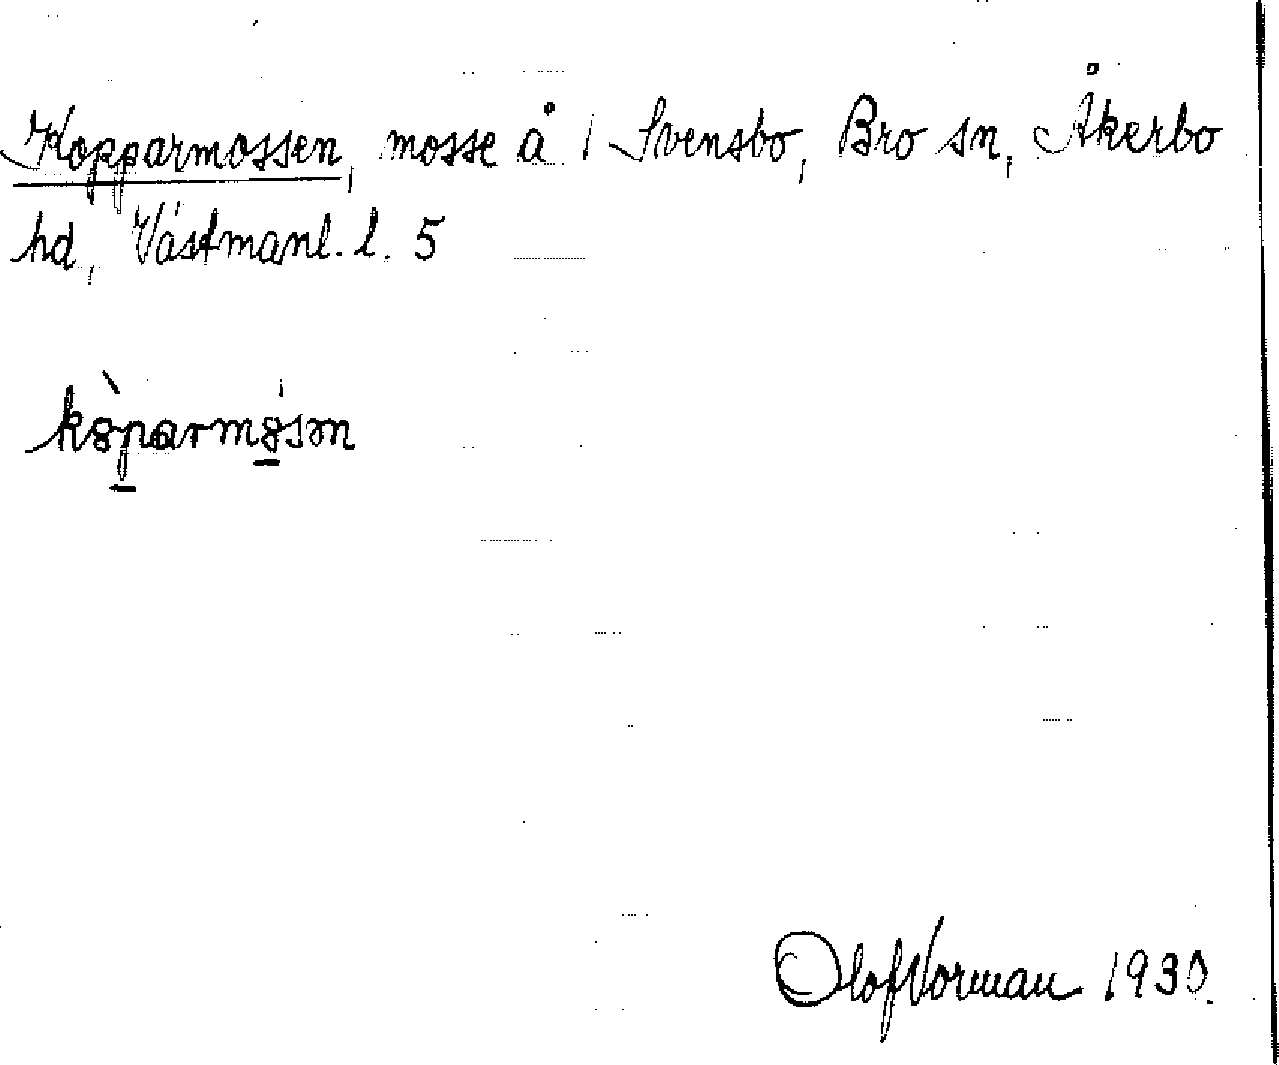 Kopparmossen, mosse å 1 Svensbo, Bro sn, Åkerbo
hd, Västmanl. l. 5
Olof Norman 1930.